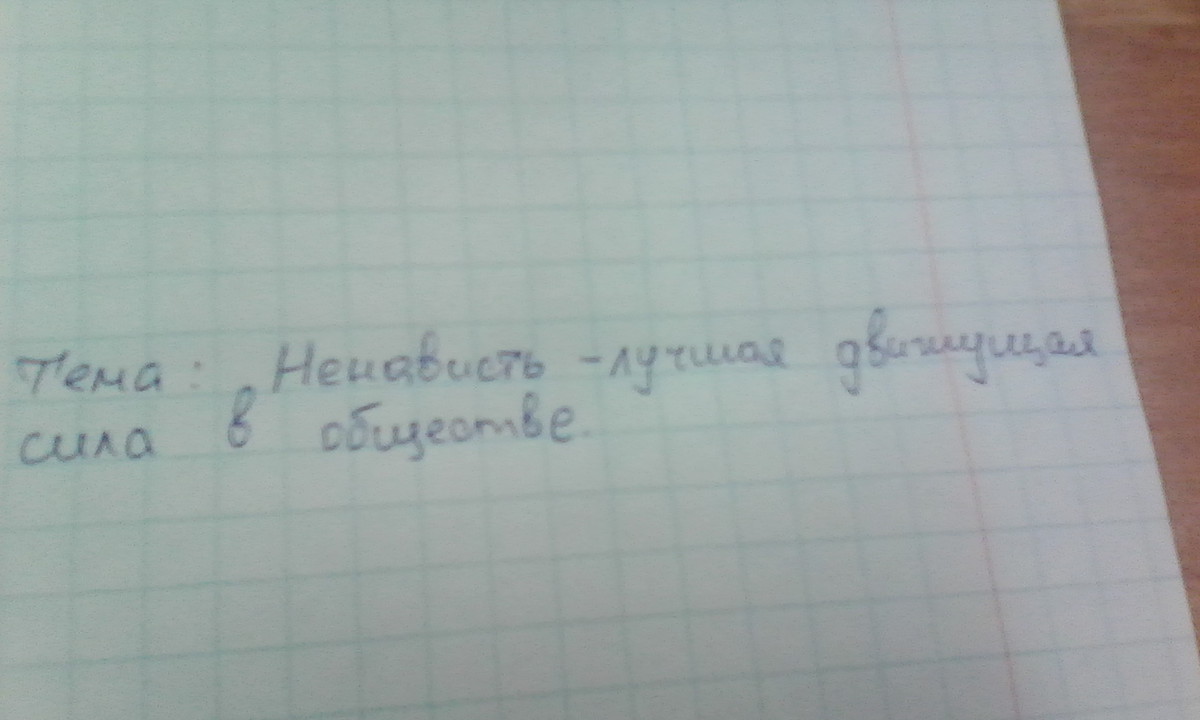 Тема: Ненависть - лучшая движущая
сила в обществе.